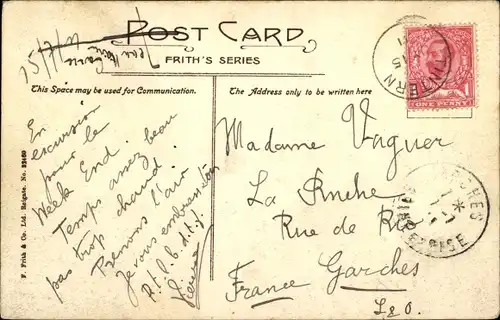 POST CARD
FRITH'S SERIES
This Space may be used for Communication.
The Address only to be written here
15/7/11
En
excursion
pour le
Week End.
Temps assez beau
pas trop chaud.
Prenons l'air
Je vous embrasse tous
R.t.l.b.d.t.f.
Pierre
Madame Vaquer
La Ruche
Rue de Rio
Garches
France
S&O.
TINTERN
ONE PENNY
GARCHES
SEINE ET OISE
F. Frith & Co. Ltd. Reigate. No.